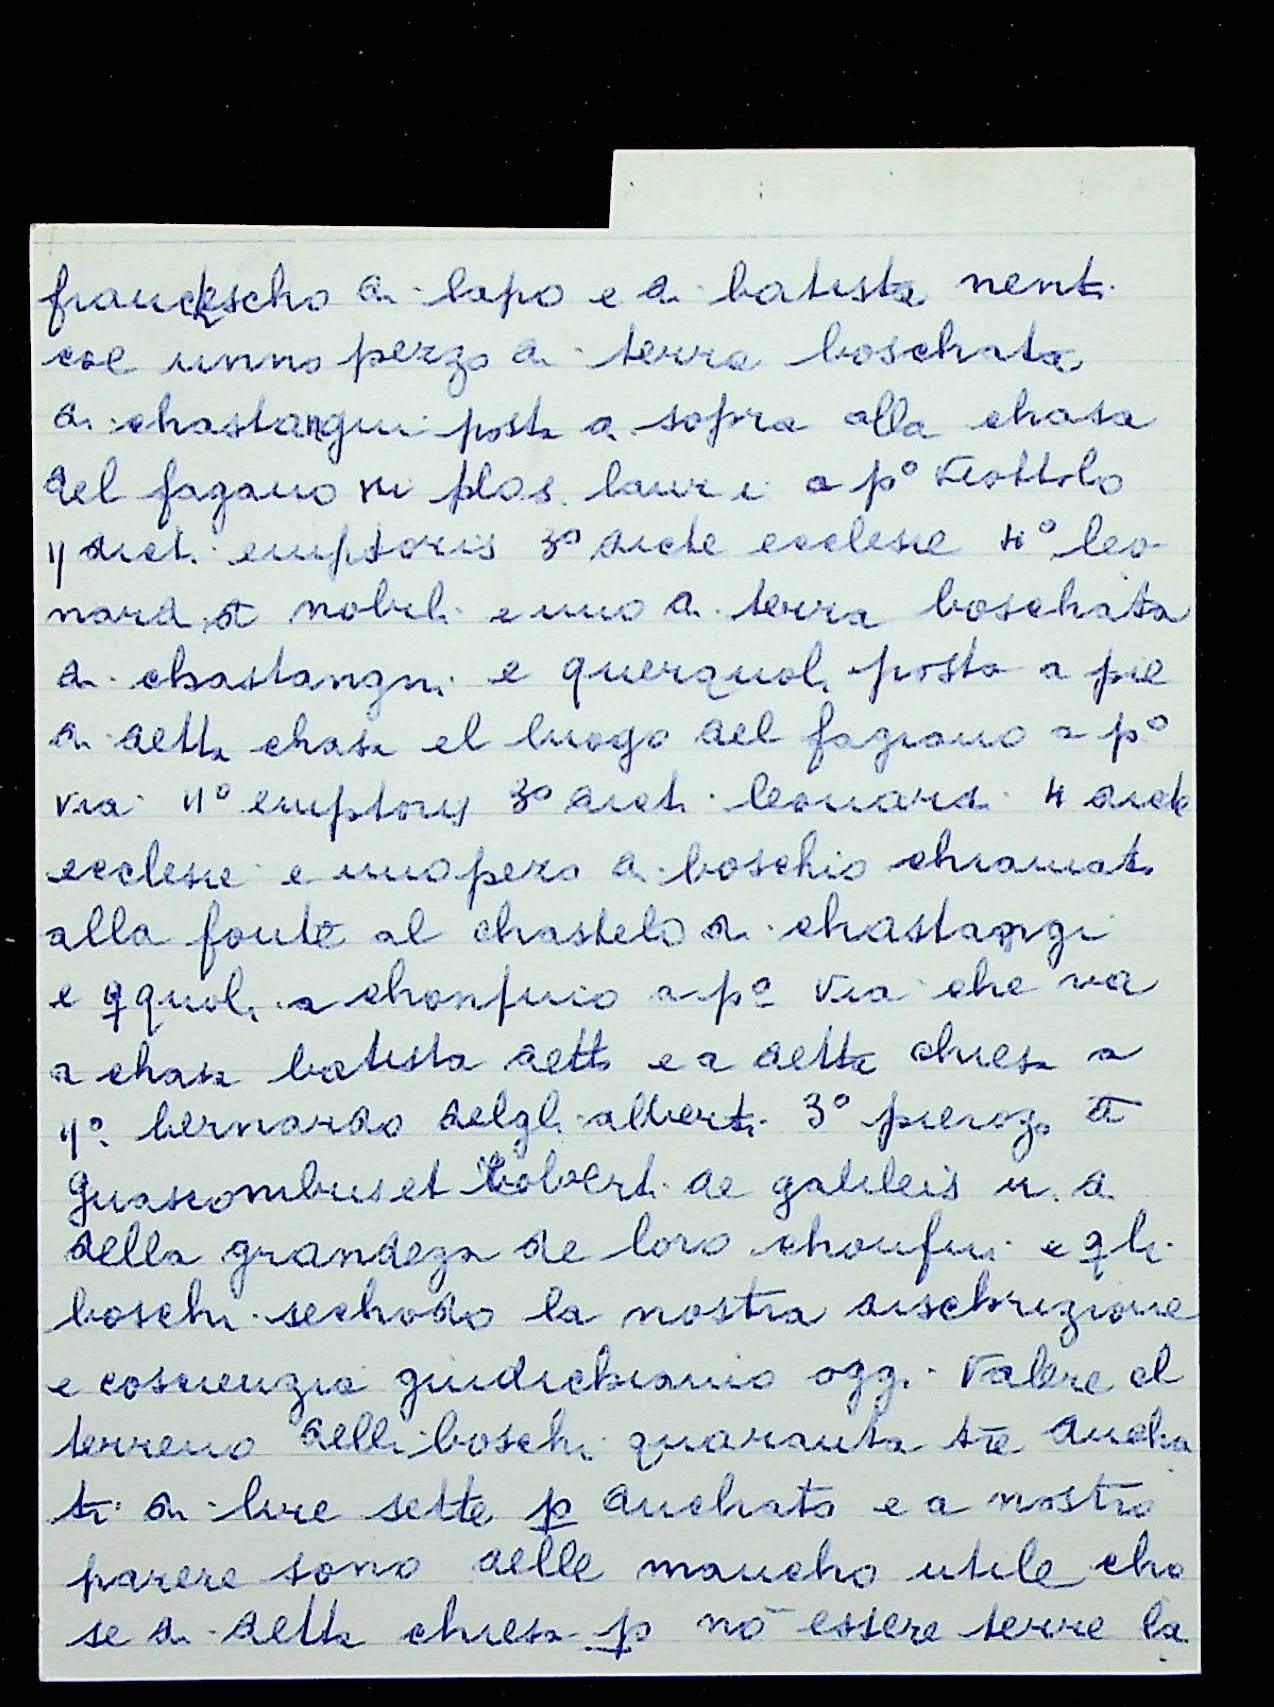 francescho di lapo e di batista nenti
coe unno pezzo di terra boschata
di chastangni posta di sopra alla chasa
del fagano plos. lauri a p° viottolo
dicti emptoris 3° dicte ecclesie 4° leo
nardi nobili e uno di terra boschata
di chastangni e querquoli posto a pie
di detta chasa el luogo del fagiano a p°
via 11° emptoris 3° dicti leonardi 4 dicte
ecclesie e uno pezo di boschio chiamato
alla fonte al chastelo di chastangi
e qquoli a chonfino a p° via che va
a chasa batista detto e a detta chiesa a
11° bernardo delgli alberti 3° pierozo
guascombus et loberti de galileis
della grandeza de loro chonfini e qli
boschi sechodo la nostra dischrizione
e coscienzia giudichiamo oggi valere el
terreno delli boschi quaranta tre duchа
ti di lire sette p duchato e a nostro
parere sono delle mancho utile cho
se di detta chiesa p nō essere terre la